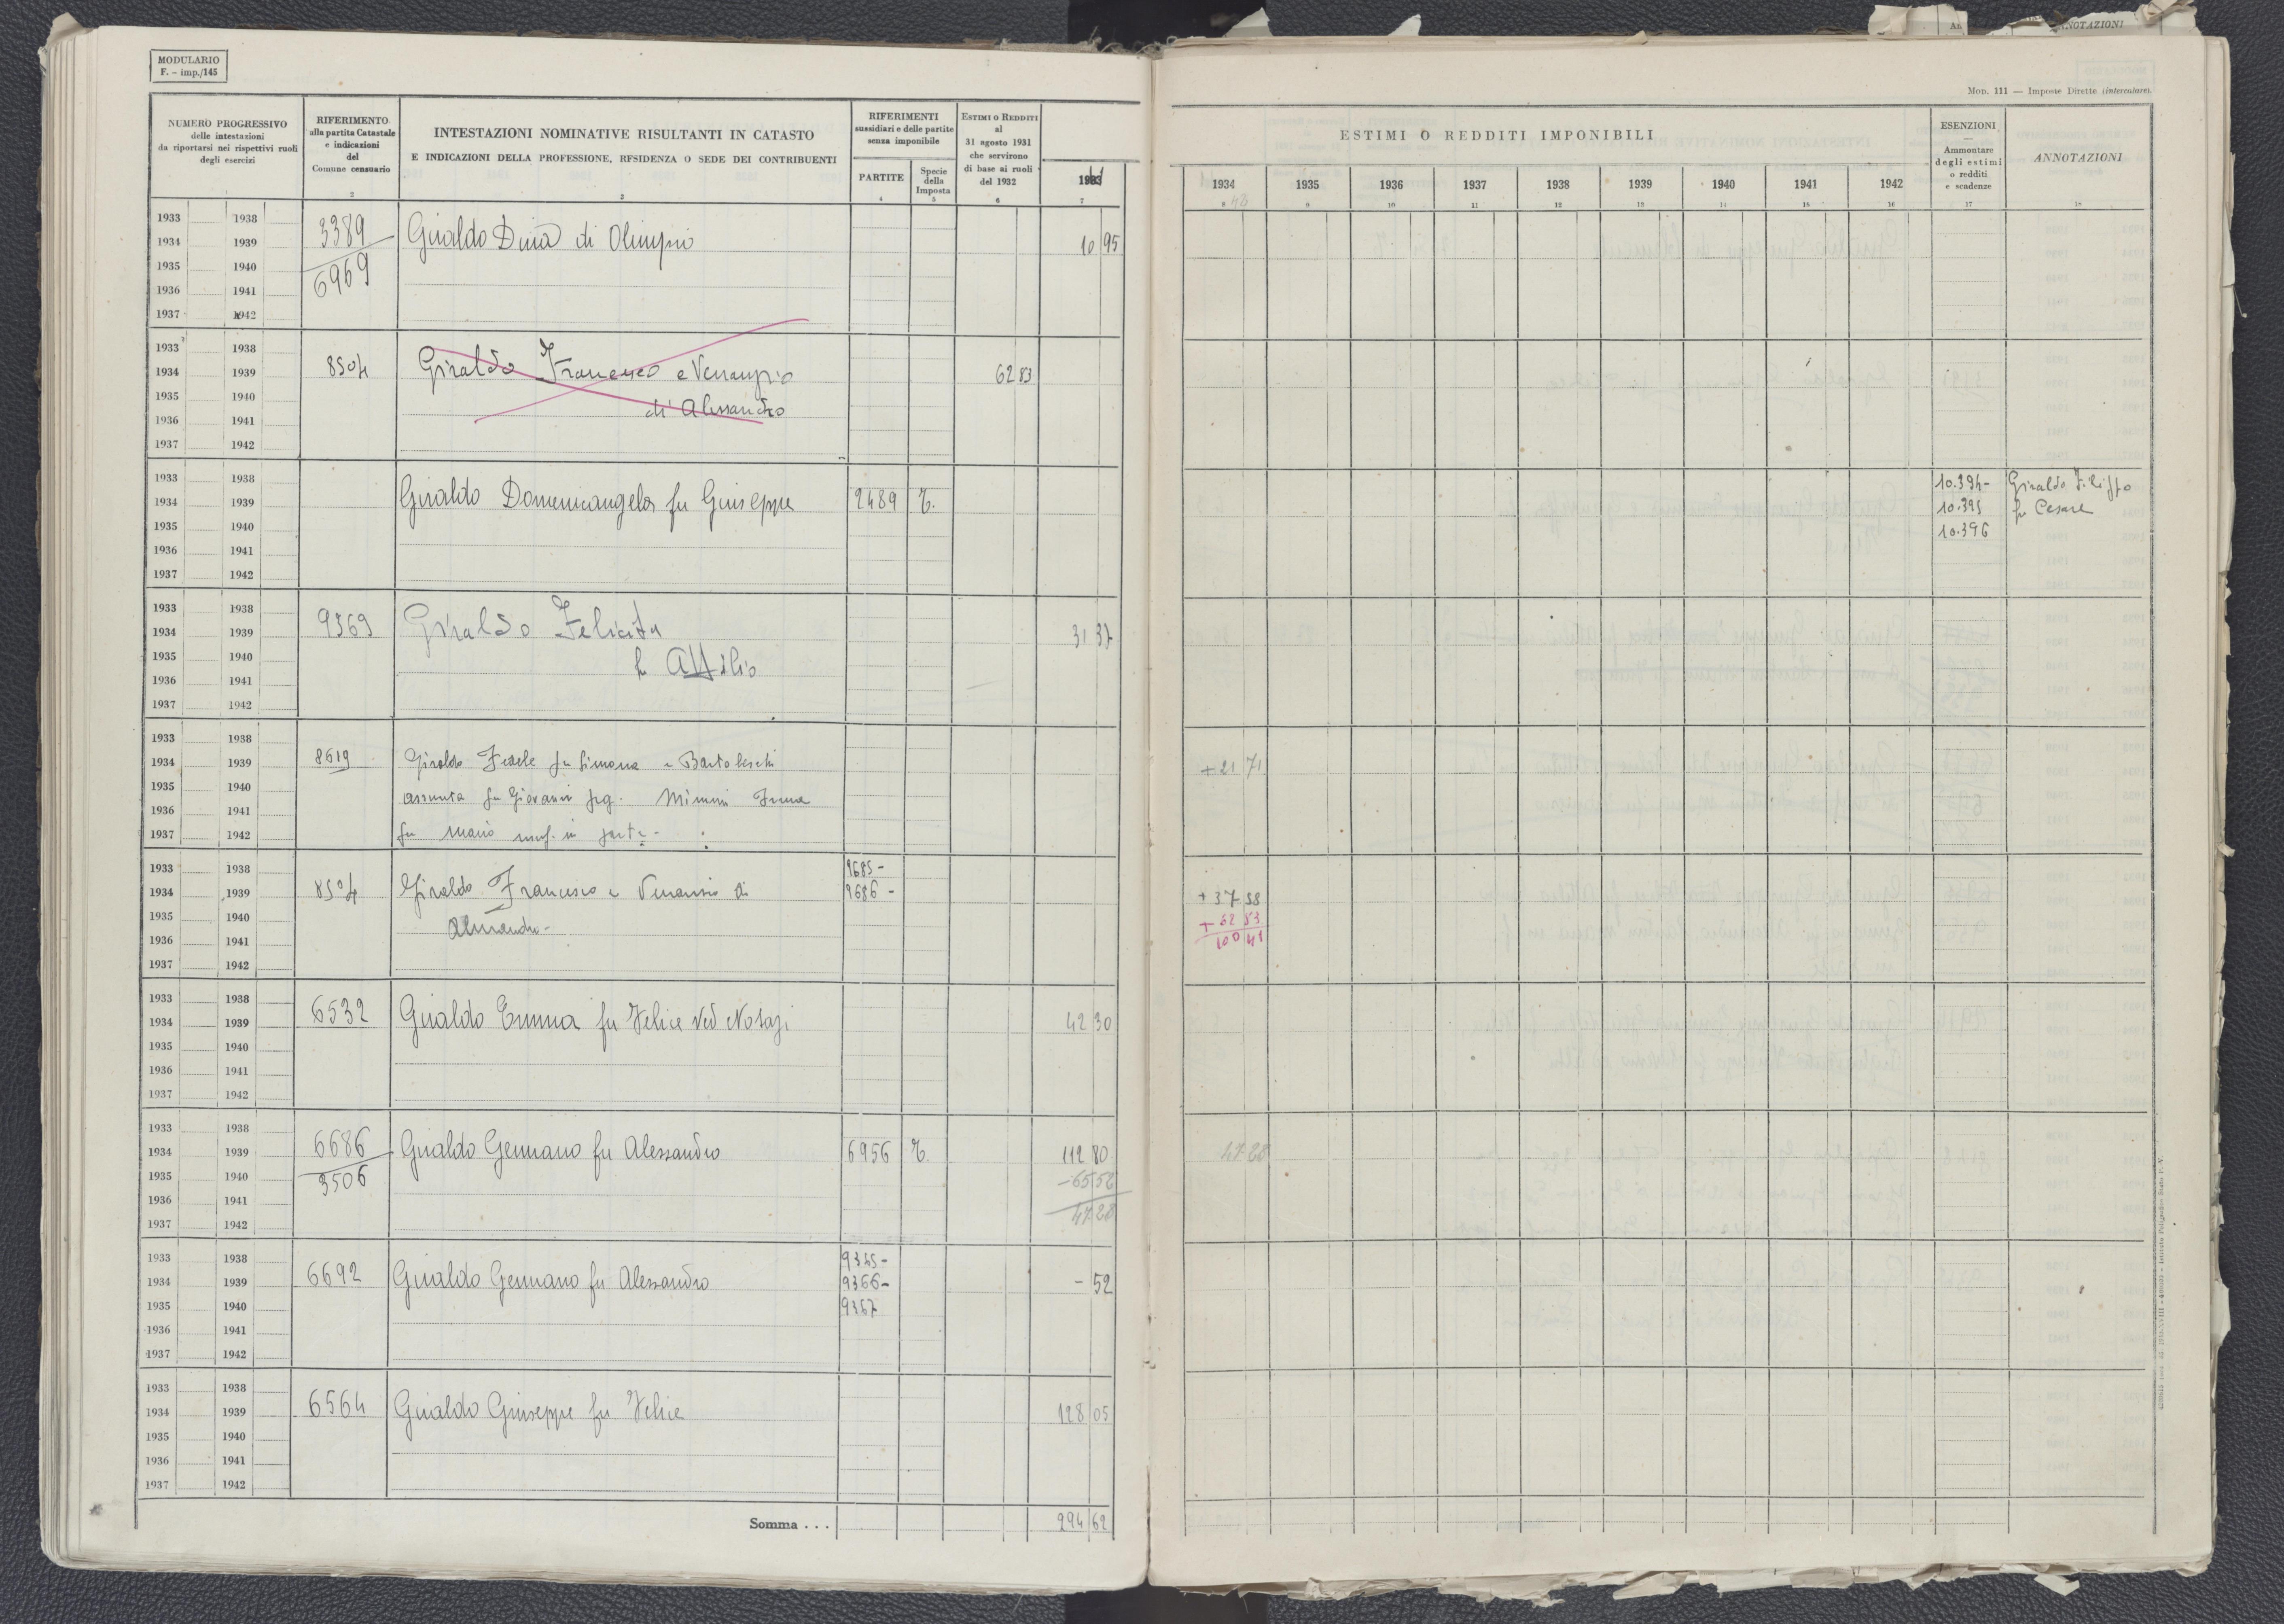 MODULARIO
F. - imp./145
NUMERO PROGRESSIVO
delle intestazioni
da riportarsi nei rispettivi ruoli
degli esercizi
1
RIFERIMENTO
alla partita Catastale
e indicazioni
del
Comune censuario
2
INTESTAZIONI NOMINATIVE RISULTANTI IN CATASTO
E INDICAZIONI DELLA PROFESSIONE, RESIDENZA O SEDE DEI CONTRIBUENTI
3
RIFERIMENTI
sussidiari e delle partite
senza imponibile
PARTITE
4
Specie
della
Imposta
5
ESTIMI O REDDITI
al
31 agosto 1931
che servirono
di base ai ruoli
del 1932
6
7
1933 1938
1934 1939
1935 1940
1936 1941
1937 1942
3389
6969
Giraldo Dina di Olimpio
10 95
1933 1938
1934 1939
1935 1940
1936 1941
1937 1942
8504
Giraldo Francesco e Venanzio
di Alessandro
62 83
1933 1938
1934 1939
1935 1940
1936 1941
1937 1942
Giraldo Domenicangelo fu Giuseppe
2489 T.
1933 1938
1934 1939
1935 1940
1936 1941
1937 1942
9369
Giraldo Felicita
fu Attilio
31 37
1933 1938
1934 1939
1935 1940
1936 1941
1937 1942
8619
Giraldo Fedele fu Simone e
assunta fu Giovanni prg.
fu Mario usuf. in parte -
1933 1938
1934 1939
1935 1940
1936 1941
1937 1942
8504
Giraldo Francesco e Venanzio di
Alessandro -
9685 -
9686 -
1933 1938
1934 1939
1935 1940
1936 1941
1937 1942
6532
Giraldo Emma fu Felice Ved
42 30
1933 1938
1934 1939
1935 1940
1936 1941
1937 1942
6686
3506
Giraldo Gennaro fu Alessandro
6956 T.
112 80
-65 52
47 28
1933 1938
1934 1939
1935 1940
1936 1941
1937 1942
6692
Giraldo Gennaro fu Alessandro
9345 -
9366 -
9367
- 52
1933 1938
1934 1939
1935 1940
1936 1941
1937 1942
6564
Giraldo Giuseppe fu Felice
128 05
Somma . . .
294 62
Mod. 111 — Imposte Dirette (intercalare).
ESTIMI O REDDITI IMPONIBILI
1934 1935 1936 1937 1938 1939 1940 1941 1942
8 9 10 11 12 13 14 15 16
ESENZIONI
—
Ammontare
degli estimi
o redditi
e scadenze
17
ANNOTAZIONI
18
10.394-
10.395
10.396
Giraldo Filippo
fu Cesare
+ 21 71
+ 37 58
+ 62 83
100 41
47 28
ANNOTAZIONI